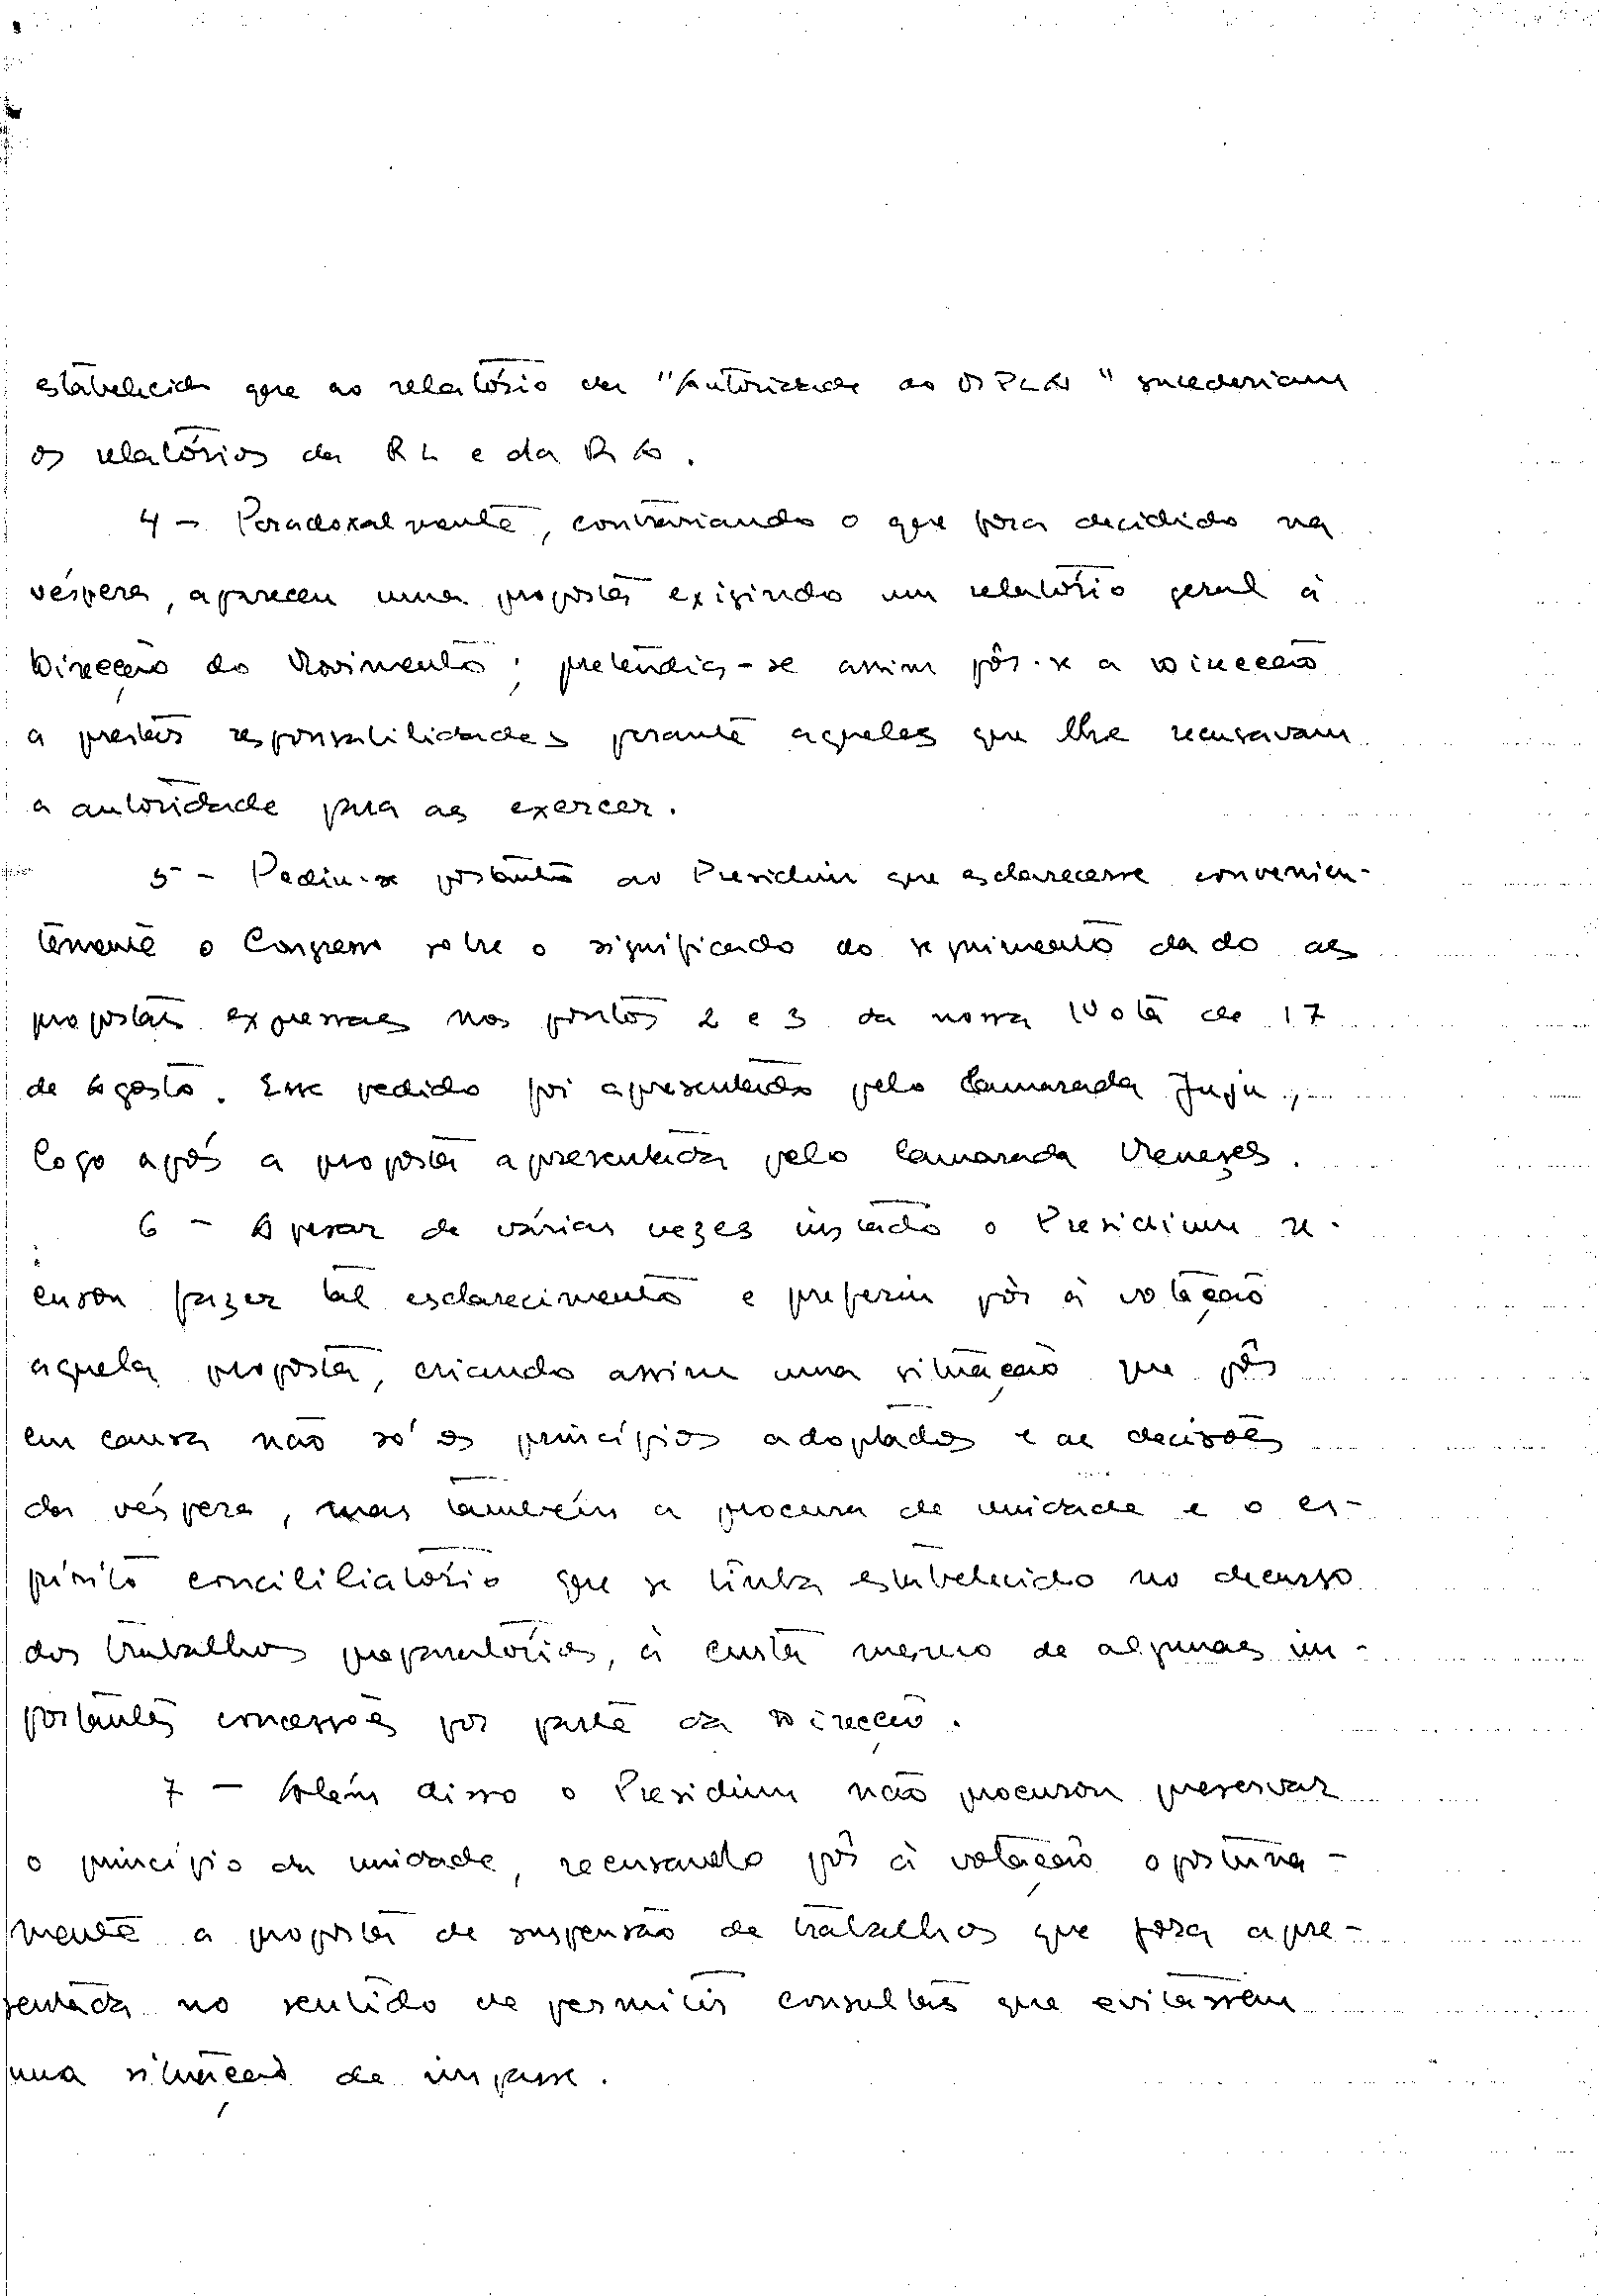 estabelecido que ao relatório da "Autoridade do MPLA" sucederiam
os relatórios da RL e da RA.
4 - Paradoxalmente, contrariando o que fora decidido na
véspera, apareceu uma proposta exigindo um relatório geral à
Direcção do Movimento; pretendia-se assim pôr-se a Direcção
a prestar responsabilidades perante aqueles que lhe recusavam
a autoridade para as exercer.
5 - Pediu-se portanto ao Presidium que esclarecesse convenien-
temente o Congresso sobre o significado do seguimento dado às
propostas expressas nos pontos 2 e 3 da nossa Nota de 17
de Agosto. Esse pedido foi apresentado pelo Camarada Juju,
logo após a proposta apresentada pelo Camarada Menezes.
6 - Apesar de várias vezes instado o Presidium re-
cusou fazer tal esclarecimento e preferiu pôr à votação
aquela proposta, criando assim uma situação que pôs
em causa não só os princípios adoptados e as decisões
da véspera, mas também a procura de unidade e o es-
pírito concililiatório que se tinha estabelecido no decurso
dos trabalhos preparatórios, à custa mesmo de algumas im-
portantes concessões por parte da Direcção.
7 - Além disso o Presidium não procurou preservar
o princípio da unidade, recusando pôr à votação oportuna-
mente a proposta de suspensão de trabalhos que fora apre-
sentada no sentido de permitir consultas que evitassem
uma situação de impasse.